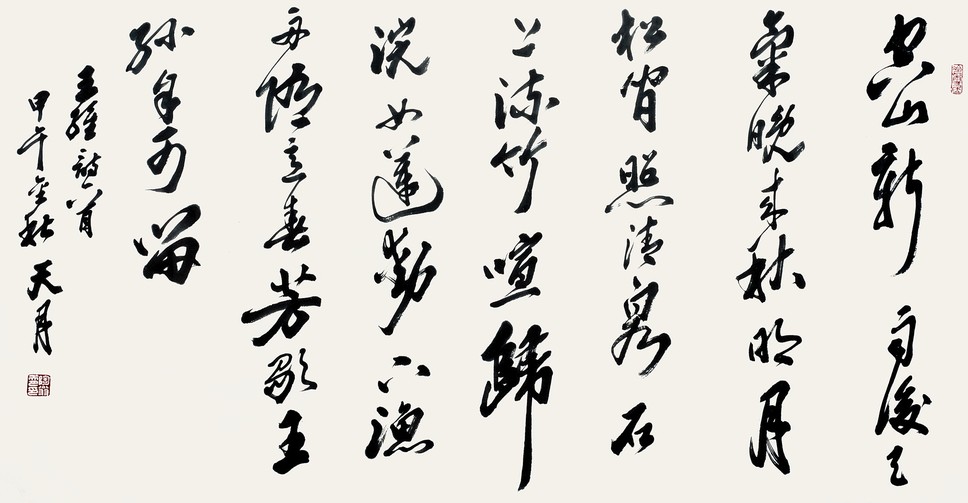 空山新雨後天
氣晚來秋明月
松間照清泉石
上流竹喧歸
浣女蓮動下漁
舟隨意春芳歇王
孫自可留
王維詩一首
甲午金秋天月